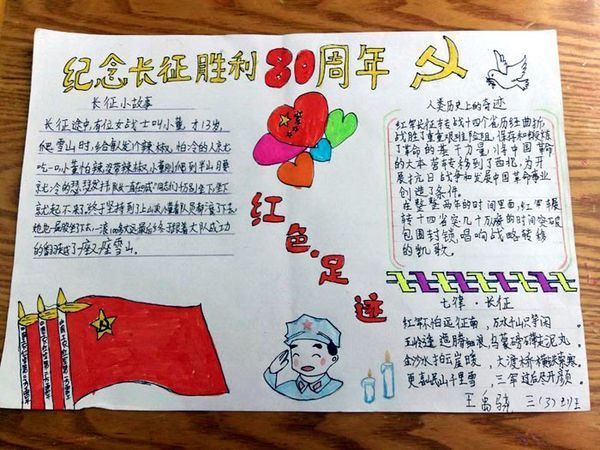 纪念长征胜利80周年
长征小故事
长征途中,有位女战士叫小董,才13岁,
爬雪山时,给每人发个辣椒,怕冷的人就
吃一口,小董怕辣,没带辣椒,小董刚爬到半山腰
就冷的
就起不来了,终于坚持到了上山
大队成功
的翻跃了一座座雪山。
红色·足迹
人类历史上的奇迹
红军长征转战十四个省历经曲折,
战胜了重重艰难险阻,保存和锻炼
了革命的基干力量,将中国革命
的大本营转移到了西北,为开
展抗日战争和发展中国革命事业
创造了条件。
在整整两年的时间里面,红军辗
转十四省突几十万敌的时间突破
包围封锁,唱响战略转移
的凯歌。
七律·长征
红军不怕远征难,万水千山只等闲
五岭逶迤腾细浪,乌蒙磅礴走泥丸,
金沙水拍云崖暖,大渡桥横铁索寒
更喜岷山千里雪,三军过后尽开颜。
王禹骁 三(3)班